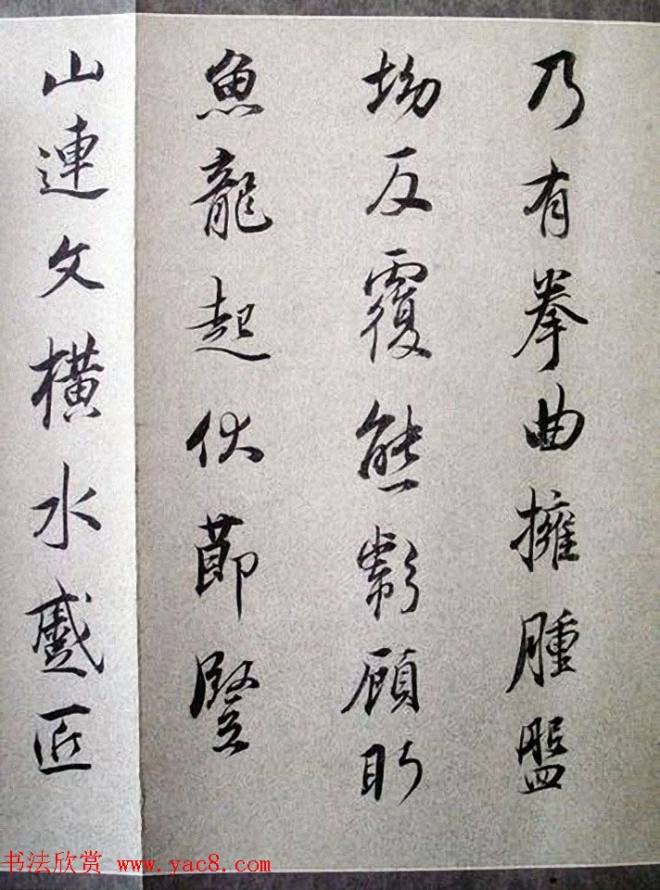 乃有拳曲擁腫盤
坳反覆熊彪顧盼
魚龍起伏節豎
山連文横水蹙匠
书法欣赏 www.yac8.com